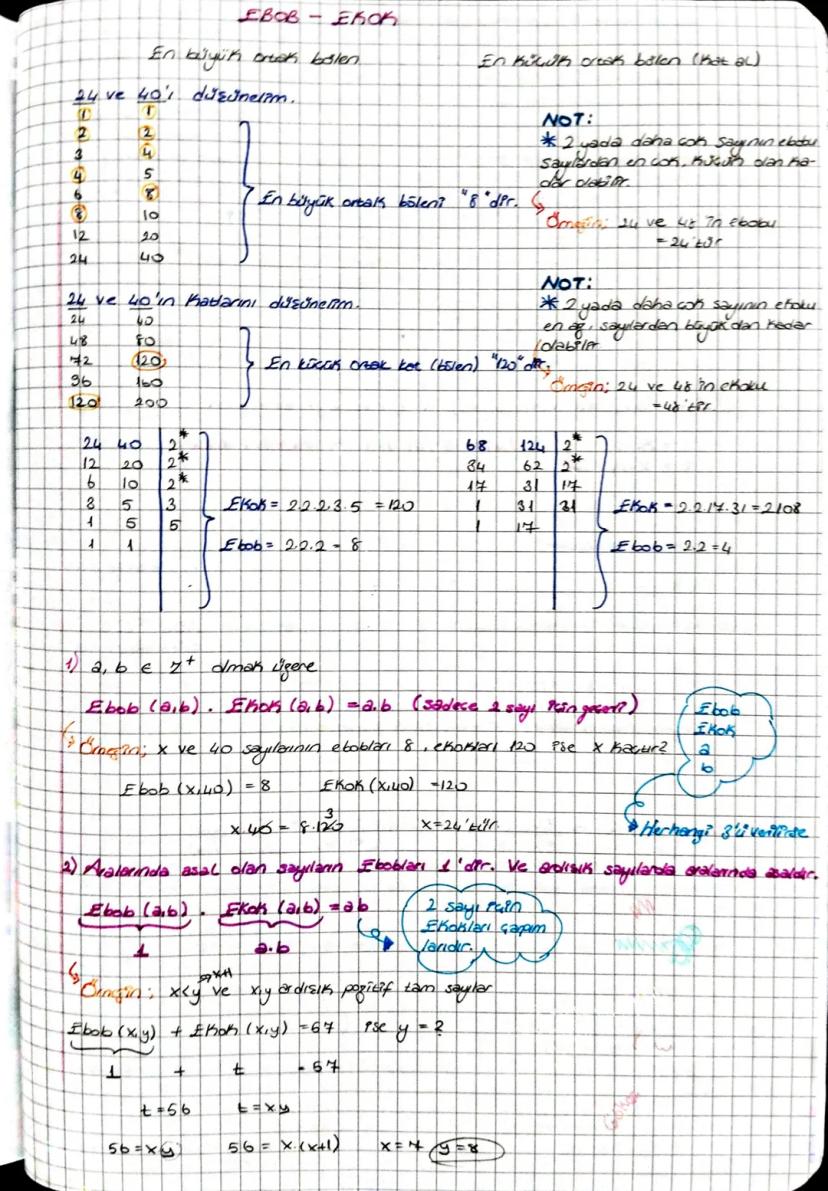 EBOB - EKOK
En büyük ortak bölen
En küçük ortak bölen (kat al)
24 ve 40'ı düşünelim.
1 1
2 2
3 4
4 5
6 8
8 10
12 20
24 40
En büyük ortak böleni "8"dir.
NOT:
* 2 yada daha çok sayının ebobu
sayılardan en çok, küçük olan ka-
dar olabilir.
Örneğin; 24 ve 48'in ebobu
= 24'tür
24 ve 40'ın katlarını düşünelim.
24 40
48 80
72 120
96 160
120 200
En küçük ortak kat (bölen) "120"dir.
NOT:
* 2 yada daha çok sayının ekoku
en az, sayılardan büyük olan kadar
olabilir
Örneğin; 24 ve 48'in ekoku
= 48'tir.
24 40 2*
12 20 2*
6 10 2*
3 5 3
1 5 5
1 1
Ekok = 2.2.2.3.5 = 120
Ebob = 2.2.2 = 8
68 124 2*
34 62 2*
17 31 17
1 31 31
1 17
Ekok = 2.2.17.31 = 2108
Ebob = 2.2 = 4
1) a, b ∈ Z+ olmak üzere
Ebob (a,b) . Ekok (a,b) = a.b (sadece 2 sayı için geçerli)
Ebob
Ekok
a
b
Herhangi 3'ü verilirse
Örneğin; x ve 40 sayılarının ebobları 8, ekokları 120 ise x kaçtır?
Ebob (x,40) = 8 Ekok (x,40) = 120
x.40 = 8.120 3 x = 24'tür.
2) Aralarında asal olan sayıların Ebobları 1'dir. Ve ardışık sayılarda aralarında asaldır.
Ebob (a,b) . Ekok (a,b) = ab
1 a.b
2 sayı için
Ekokları çarpım
larıdır.
Örneğin; x<y ve x,y ardışık pozitif tam sayılar
x+1
Ebob (x,y) + Ekok (x,y) = 57 ise y = ?
1 + t = 57
t = 56 t = xy
56 = xy 56 = x.(x+1) x = 7 y = 8